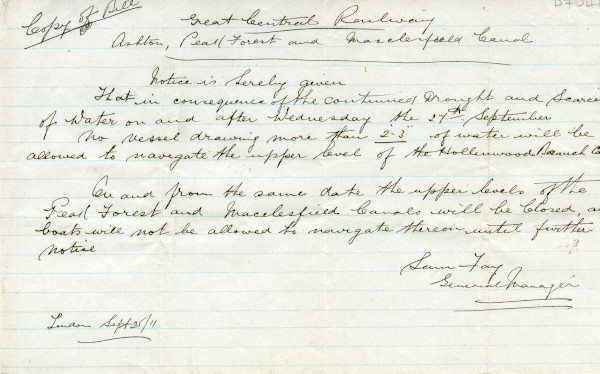 Copy of Bill
Great Central Railway
Ashton, Peak Forest and Macclesfield Canal
Notice is hereby given
That in consequence of the continued Drought and Scarci
of Water on and after Wednesday the 27th September
no vessel drawing more than 2-3" of water will be
allowed to navigate the upper level of the Hollenwood Branch Ca
On and from the same date the upper levels of the
Peak Forest and Macclesfield Canals will be closed, an
boats will not be allowed to navigate thereon until further
notice
Sam Fay
General Manager
London Sept 25/11